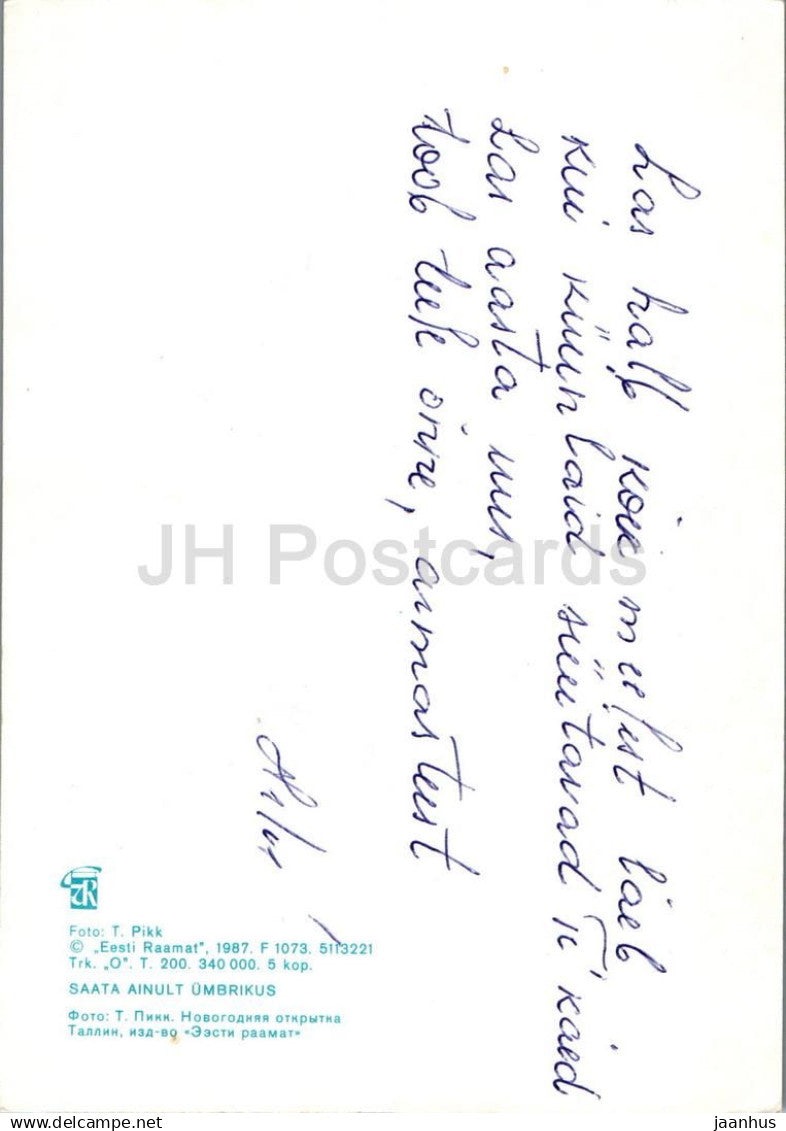 Las halb kõik meelest läeb
kui küünlaid süütavad käed
Las aasta uus,
toob teile õnne, armastust
JH Postcards
Foto: T. Pikk
© „Eesti Raamat", 1987. F 1073. 5113221
Trk. „O". T. 200. 340 000. 5 kop.
SAATA AINULT ÜMBRIKUS
Фото: Т. Пикк. Новогодняя открытка
Таллин, изд-во «Ээсти раамат»
www.delcampe.net
jaanhus